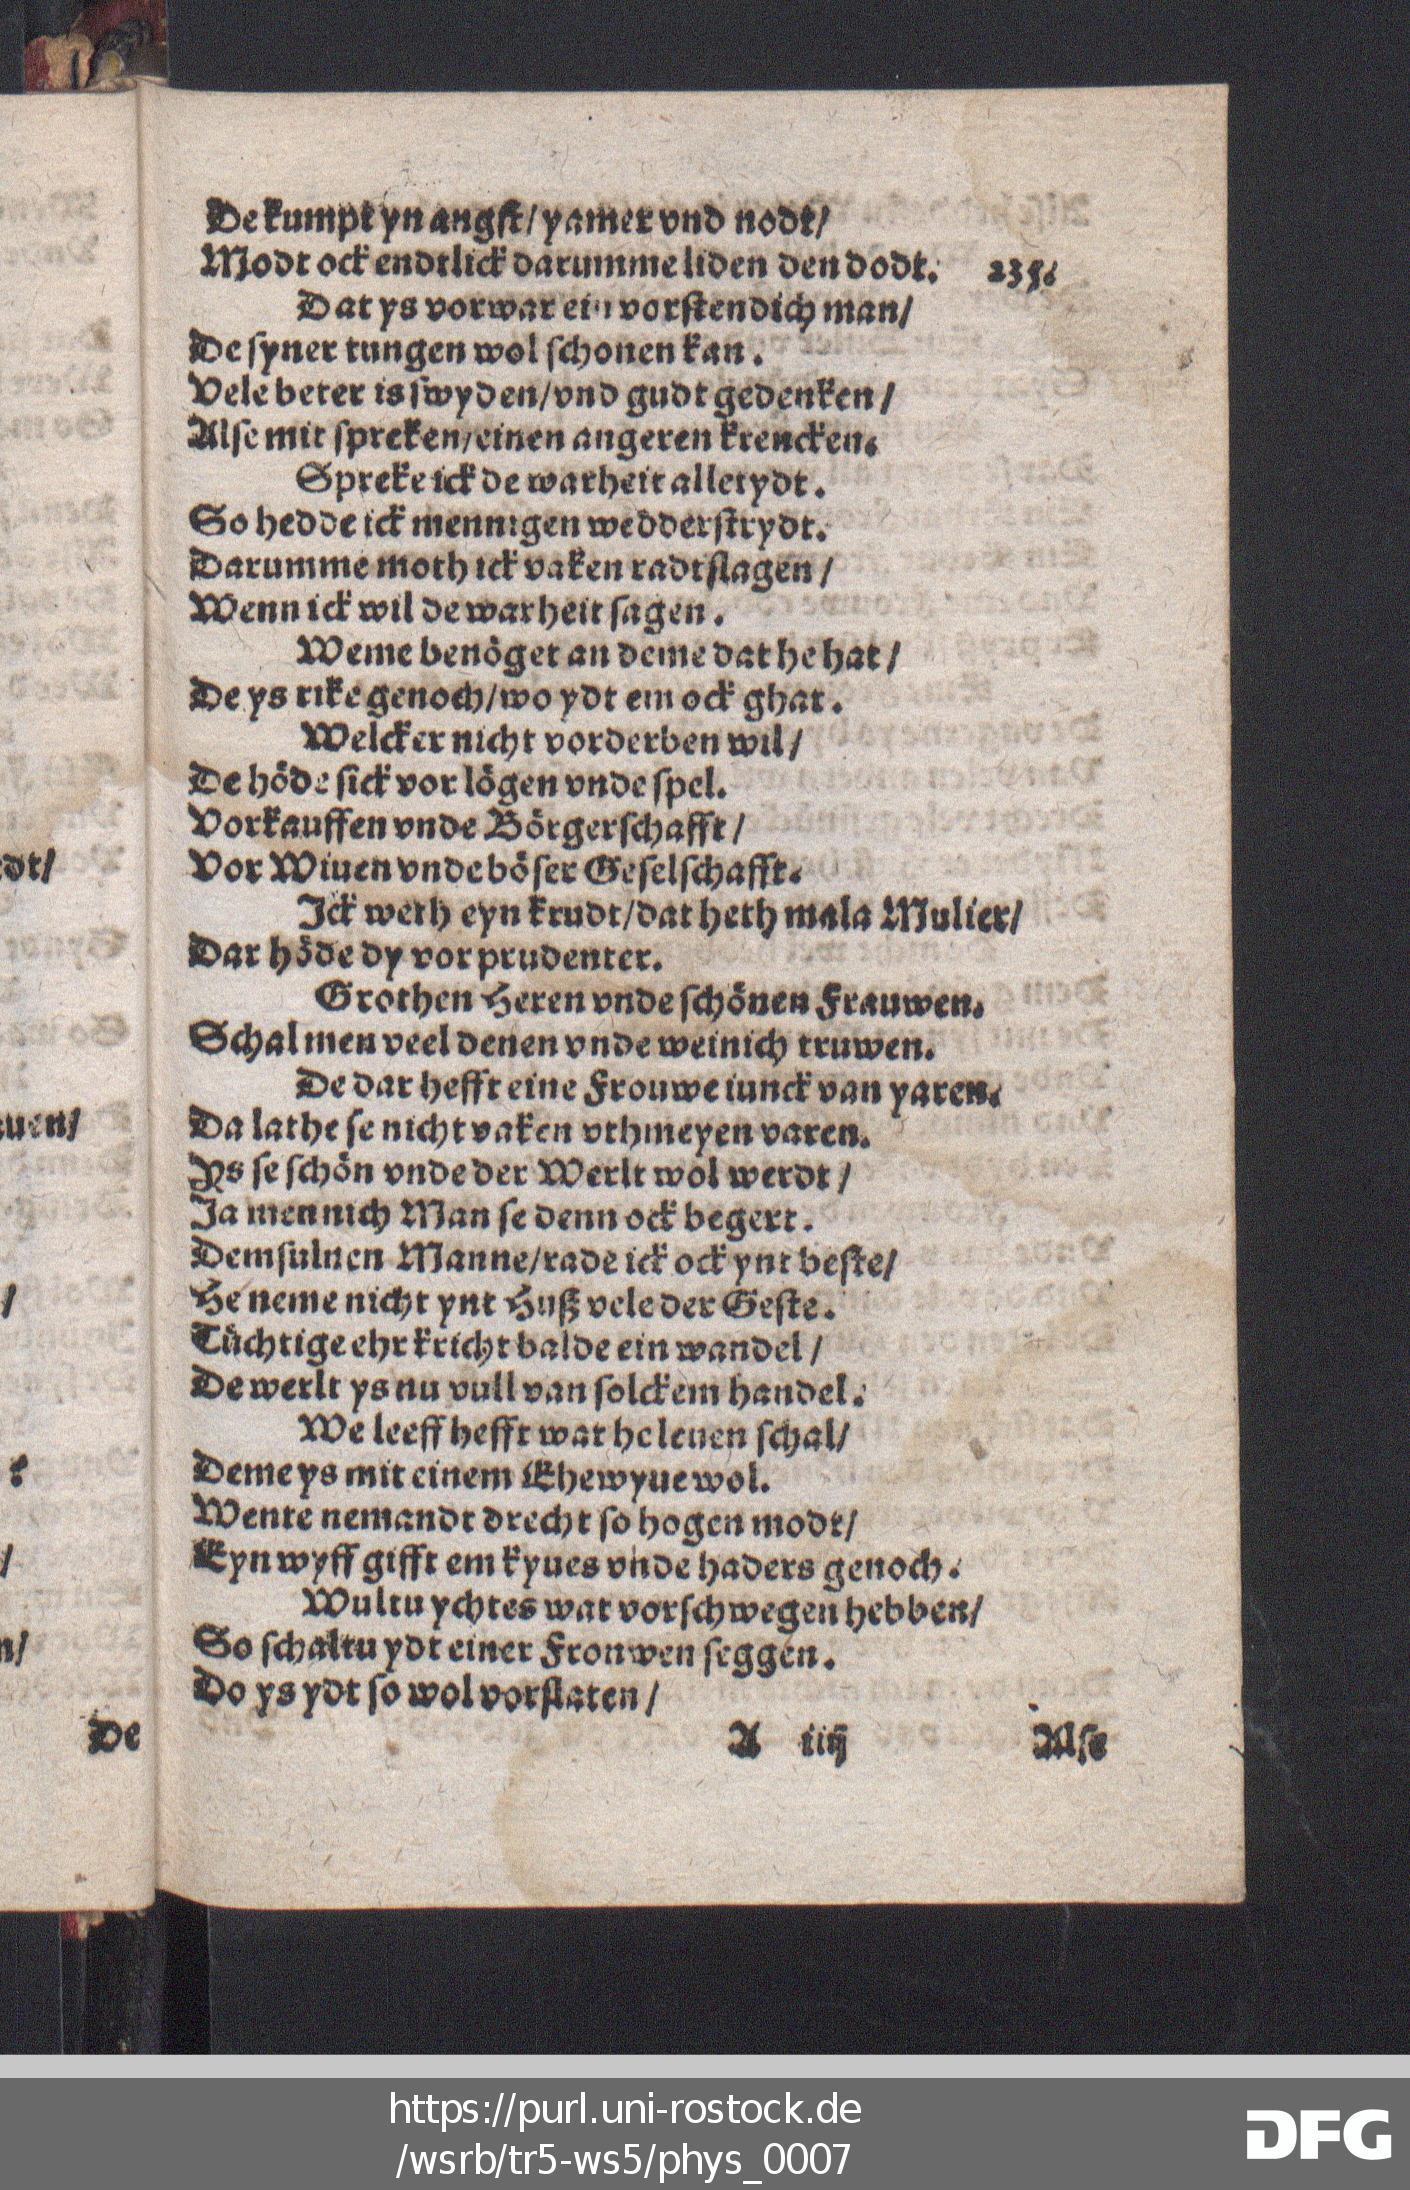 De kumpt yn angſt/ yamer vnd nodt/
Modt ock endtlick darumme liden den dodt. 235.
Dat ys vorwar ein vorſtendich man/
De ſyner tungen wol ſchonen kan.
Vele beter is ſwyden/vnd gudt gedenken/
Alſe mit ſpreken/einen angeren krencken.
Spreke ick de warheit alletydt.
So hedde ick mennigen wedderſtrydt.
Darumme moth ick vaken radtſlagen/
Wenn ick wil de warheit ſagen.
Weme benöget an deme dat he hat/
De ys rike genoch/wo ydt em ock ghat.
Welcker nicht vorderben wil/
De höde ſick vor lögen vnde ſpel.
Vorkauffen vnde Börgerſchafft/
Vor Wiuen vnde böſer Geſelſchafft.
Jck weth eyn krudt/dat heth mala Mulier/
Dar höde dy vor prudenter.
Grothen Heren vnde ſchönen Frauwen.
Schal men veel denen vnde weinich truwen.
De dar hefft eine Frouwe iunck van yaren.
Da lathe ſe nicht vaken vthmeyen varen.
Ys ſe ſchön vnde der Werlt wol werdt/
Ja mennich Man ſe denn ock begert.
Demſulnen Manne/rade ick ock ynt beſte/
He neme nicht ynt Huß vele der Geſte.
Tüchtige ehr kricht balde ein wandel/
De werlt ys nu vull van ſolckem handel.
We leeff hefft wat he leuen ſchal/
Deme ys mit einem Ehewyue wol.
Wente nemandt drecht ſo hogen modt/
Eyn wyff gifft em kyues vnde haders genoch.
Wultu ychtes wat vorſchwegen hebben/
So ſchaltu ydt einer Fronwen ſeggen.
Do ys ydt ſo wol vorſlaten/
A iiij Alſe
dt/
uen/
/
?
/
n/
De
https://purl.uni-rostock.de
/wsrb/tr5-ws5/phys_0007
DFG